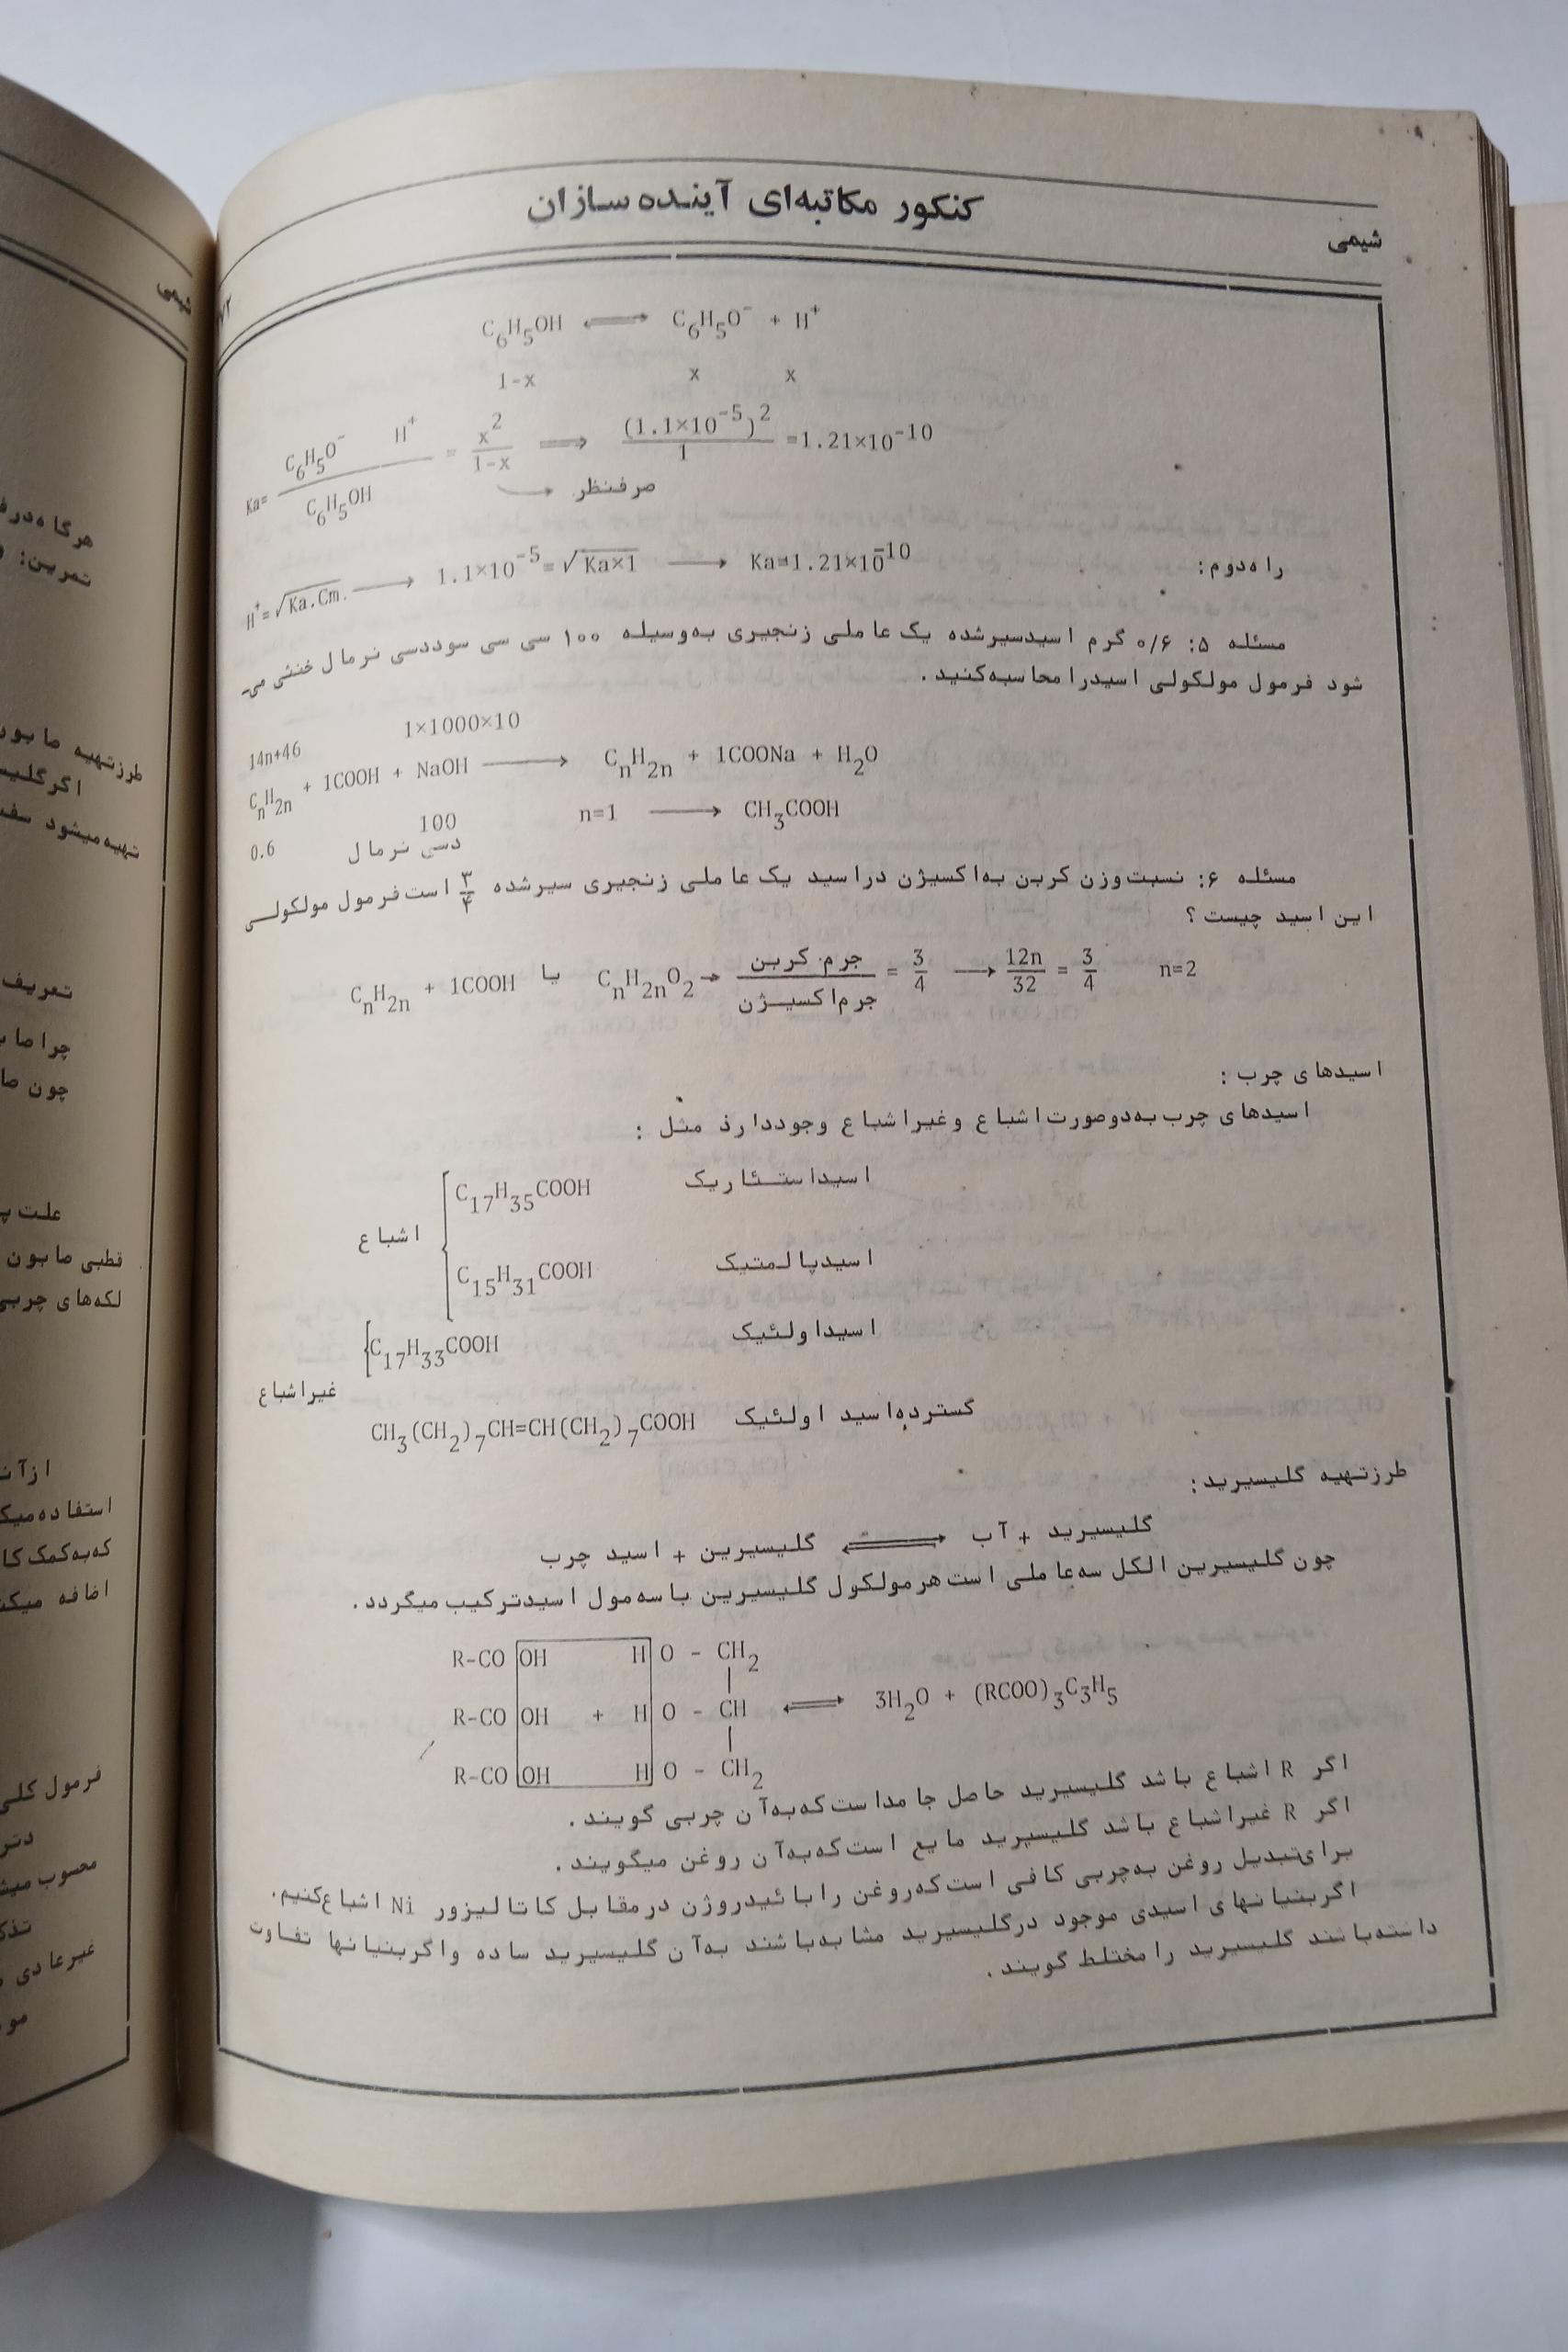 کنکور مکاتبه‌ای آینده سازان
شیمی
C6H5OH ⟷ C6H5O⁻ + H⁺
1-x x x
Ka= C6H5O⁻ H⁺ / C6H5OH = x²/1-x ⟹ (1.1×10⁻⁵)²/1 =1.21×10⁻¹⁰
صرفنظر
راه‌دوم: H⁺=√Ka.Cm. ⟶ 1.1×10⁻⁵=√Ka×1 ⟶ Ka=1.21×10⁻¹⁰
مسئله ۵: ۰/۶ گرم اسیدسیرشده یک عاملی زنجیری به‌وسیله ۱۰۰ سی سی سوددسی نرمال خنثی می‌-
شود فرمول مولکولی اسیدرا محاسبه‌کنید.
14n+46 1×1000×10
CnH2n + 1COOH + NaOH ⟶ CnH2n + 1COONa + H2O
0.6 100 دسی نرمال n=1 ⟶ CH3COOH
مسئله ۶: نسبت‌وزن کربن به‌اکسیژن دراسید یک عاملی زنجیری سیرشده ۳/۴ است‌فرمول مولکولی
این اسید چیست؟
CnH2n + 1COOH یا CnH2nO2 → جرم کربن/جرم‌اکسیژن = 3/4 ⟶ 12n/32 = 3/4 n=2
اسیدهای چرب:
اسیدهای چرب به‌دوصورت‌اشباع وغیراشباع وجوددارذ مثل:
C17H35COOH اسیداستئاریک
اشباع
C15H31COOH اسیدپالمتیک
C17H33COOH اسیداولئیک
غیراشباع
CH3(CH2)7CH=CH(CH2)7COOH گسترده‌اسید اولئیک
طرزتهیه گلیسیرید:
گلیسیرید + آب ⟷ گلیسیرین + اسید چرب
چون گلیسیرین الکل سه‌عاملی است‌هرمولکول گلیسیرین باسه‌مول اسیدترکیب میگردد.
R-CO OH H O - CH2
R-CO OH + H O - CH ⟷ 3H2O + (RCOO)3C3H5
R-CO OH H O - CH2
اگر R اشباع باشد گلیسیرید حاصل جامداست‌که‌به‌آن چربی گویند.
اگر R غیراشباع باشد گلیسیرید مایع است‌که‌به‌آن روغن میگویند.
برای‌تبدیل روغن به‌چربی کافی است‌که‌روغن رابائیدروژن درمقابل کاتالیزور Ni اشباع‌کنیم.
اگربنیانهای اسیدی موجود درگلیسیرید مشابه‌باشند به‌آن گلیسیرید ساده واگربنیانها تفاوت
داشته‌باشند گلیسیرید را مختلط گویند.
شیمی
هرگاه‌در
تمرین:
طرزتهیه
تهیه‌میشود
تعریف
چون
قطبی صابون
لکه‌های چربی
استفاده‌میک
که‌به‌کمک
اضافه میکن
فرمول کلی
محسوب
غیرعادی